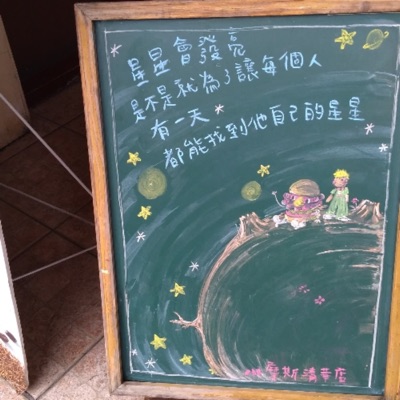 星星會發亮
是不是就為了讓每個人
有一天
都能找到他自己的星星
摩斯清華店